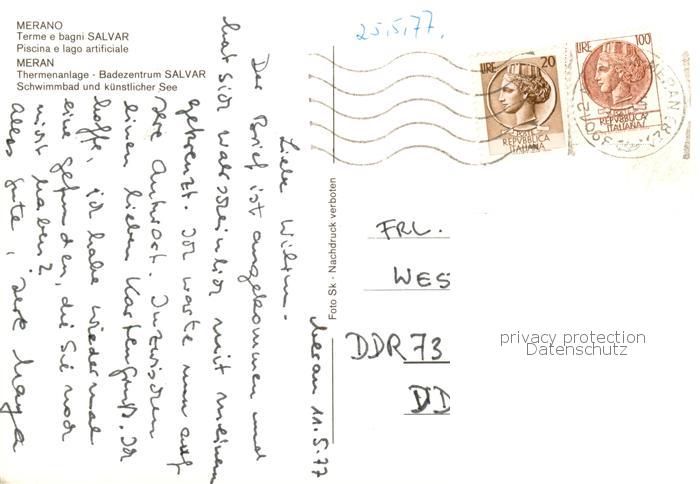 MERANO
Terme e bagni SALVAR
Piscina e lago artificiale
MERAN
Thermenanlage - Badezentrum SALVAR
Schwimmbad und künstlicher See
25.5.77.
LIRE 20
POSTE
REPVBBLICA
ITALIANA
LIRE 100
REPVBBLICA
ITALIANA
Meran 11.5.77
Liebe
Der Brief ist angekommen und
hat sich wahrscheinlich mit meinem
gekreuzt. Ich warte nun auf
Ihre Antwort. Inzwischen
einen lieben Kartengruß. Ich
hoffe, ich habe wieder mal
eine gefunden, die Sie noch
nicht haben?
Alles Gute, Ihre Maya
Foto Sk - Nachdruck verboten
FRL.
WES
DDR 73
DD
privacy protection
Datenschutz